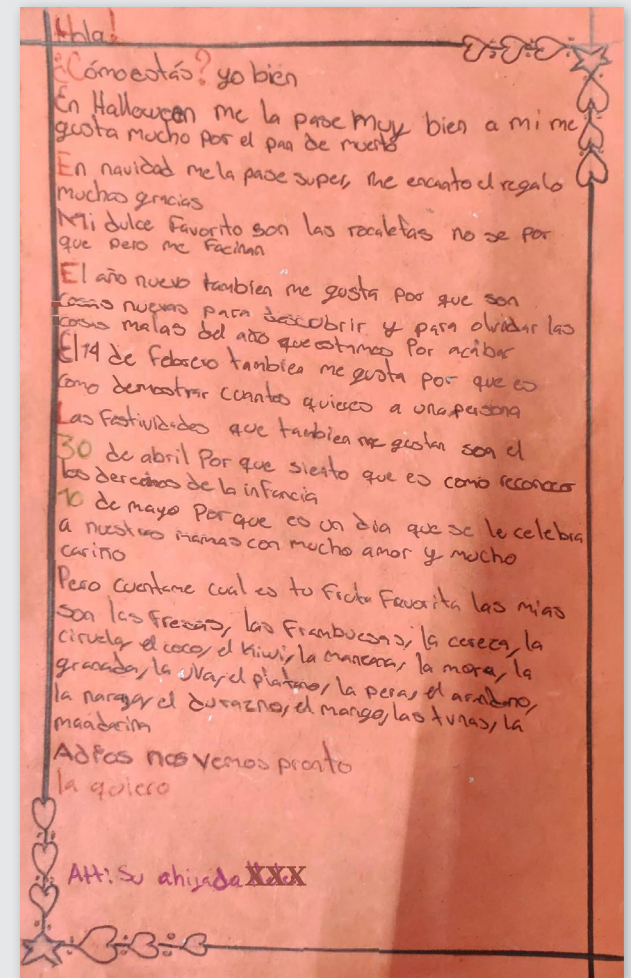 Hola!
¿Cómo estás? yo bien
En Halloween me la pase muy bien a mi me
gusta mucho por el pan de muerto
En navidad me la pase super, me encanto el regalo
muchas gracias
Mi dulce Favorito son las rocaletas no se por
que pero me Facinan
El año nuevo tambien me gusta por que son
cosas nuevas para descubrir y para olvidar las
cosas malas del año que estamos Por acabar
El 14 de Febrero tambien me gusta por que es
como demostrar cuanto quieres a una persona
Las Festividades que tambien me gustan son el
30 de abril Por que siento que es como reconocer
los derechos de la infancia
10 de mayo Porque es un dia que se le celebra
a nuestras mamas con mucho amor y mucho
cariño
Pero cuentame cual es tu Fruta Favorita las mias
son las fresas, las Frambuesas, la cereza, la
ciruela, el coco, el kiwi, la manzana, la mora, la
granada, la uva, el platano, la pera, el arandano,
la naranja, el durazno, el mango, las tunas, la
mandarina
Adios nos vemos pronto
la quiero
Att: Su ahijada XXX